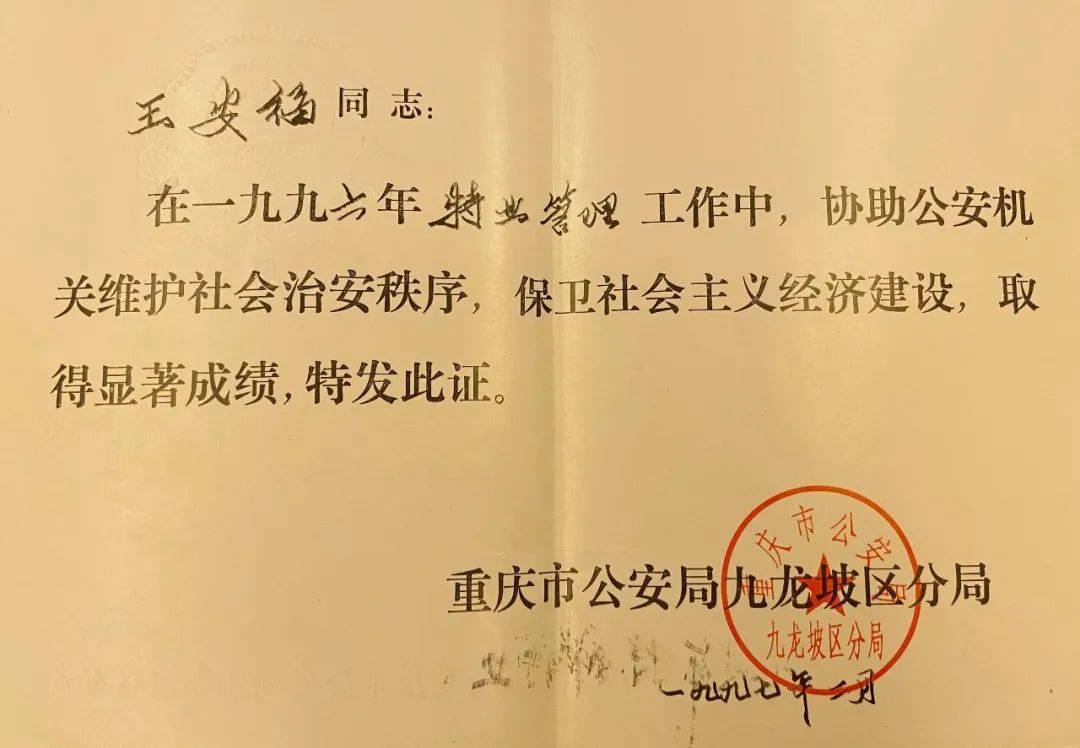 王安福同志：
在一九九六年特业管理工作中，协助公安机
关维护社会治安秩序，保卫社会主义经济建设，取
得显著成绩，特发此证。
重庆市公安局
九龙坡区分局
重庆市公安局九龙坡区分局
一九九七年二月